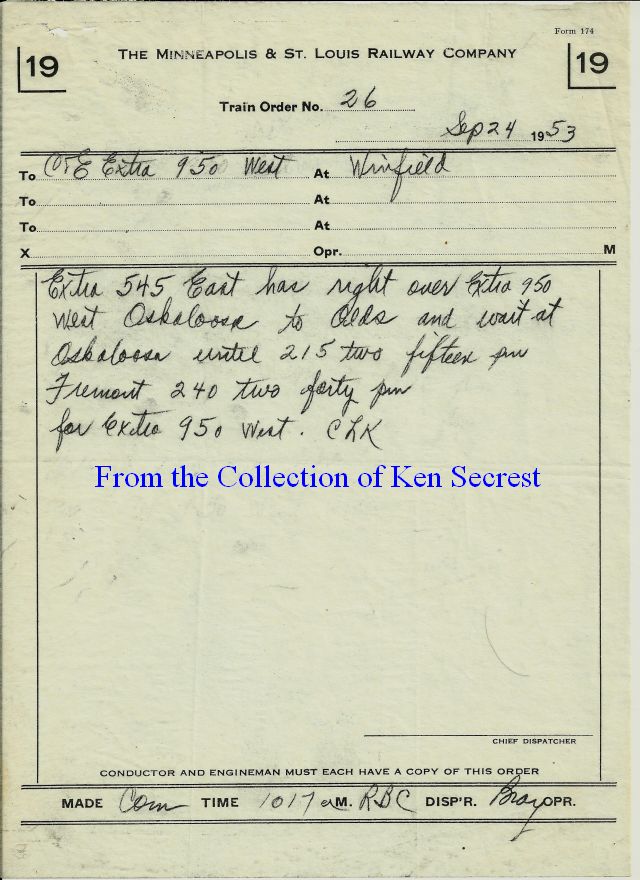 Form 174
19
THE MINNEAPOLIS & ST. LOUIS RAILWAY COMPANY
19
Train Order No. 26
Sep 24 1953
To C&E Extra 950 West At Winfield
To At
To At
X Opr. M
Extra 545 East has right over Extra 950
West Oskaloosa to Olds and wait at
Oskaloosa until 215 two fifteen pm
Fremont 240 two forty pm
for Extra 950 West. CLK
From the Collection of Ken Secrest
CHIEF DISPATCHER
CONDUCTOR AND ENGINEMAN MUST EACH HAVE A COPY OF THIS ORDER
MADE Com TIME 1017 a M. RBC DISP'R. Bray OPR.